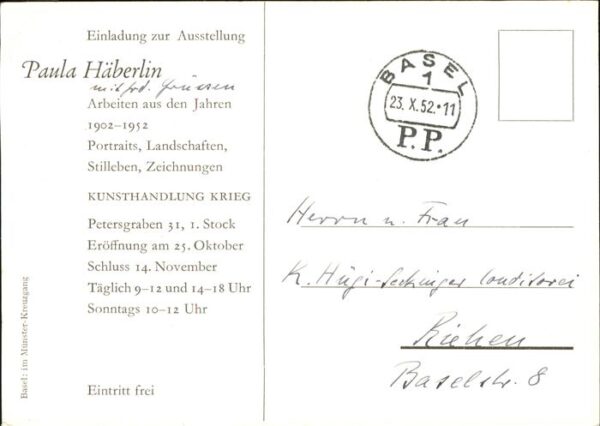 Einladung zur Ausstellung
Paula Häberlin
mit frdl. Grüssen
Arbeiten aus den Jahren
1902–1952
Portraits, Landschaften,
Stilleben, Zeichnungen
KUNSTHANDLUNG KRIEG
Petersgraben 31, 1. Stock
Eröffnung am 25. Oktober
Schluss 14. November
Täglich 9–12 und 14–18 Uhr
Sonntags 10–12 Uhr
Eintritt frei
Basel: im Münster-Kreuzgang
BASEL
1
23. X. 52.·11
P.P.
Herrn u. Frau
K. Hügi- Conditorei
Riehen
Baselstr. 8